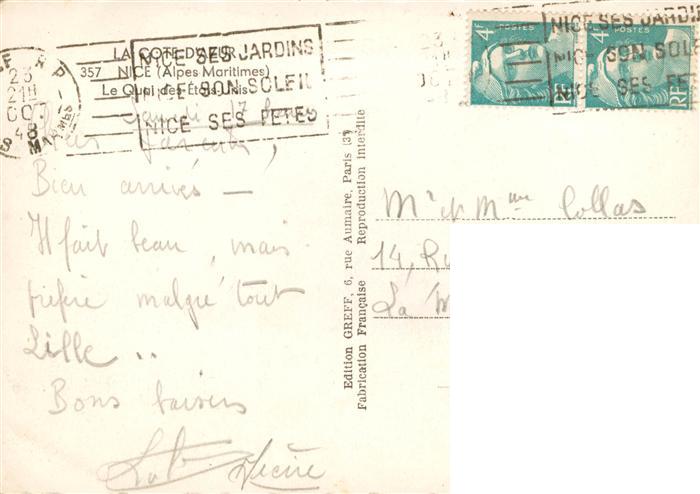 LA COTE D'AZUR
357 NICE (Alpes Maritimes)
Le Quai des États-Unis
NICE SES JARDINS
NICE SON SOLEIL
NICE SES FETES
Chers Parents,
Bien arrivés —
Il fait beau, mais
préfère malgré tout
Lille ..
Bons baisers
Edition GREFF, 6, rue Aumaire, Paris (3e)
Fabrication Française Reproduction interdite
4F POSTES RF
4F POSTES RF
NICE SES JARDIN
SON SOL
NICE SES FE
Mr et Mme Collas
14, Ru
La M